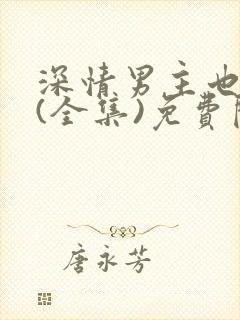 深情男主也
(全集)免費
唐永芳